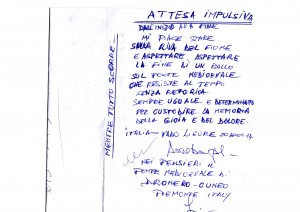 ATTESA IMPULSIVA
DALL'INIZIO ALLA FINE
MI PIACE STARE
SULLA RIVA DEL FIUME
E ASPETTARE ASPETTARE
LA FINE DI UN
SUL PONTE MEDIOEVALE
CHE RESISTE AL TEMPO
SENZA RETORICA
SEMPRE UGUALE E DETERMINATO
PER CUSTODIRE LA MEMORIA
DELLA GIOIA E DEL DOLORE.
ITALIA - VADO LIGURE
NEI PENSIERI IL
PONTE MEDIOEVALE DI
DRONERO - CUNEO
PIEMONTE ITALY
MENTRE TUTTO SCORRE